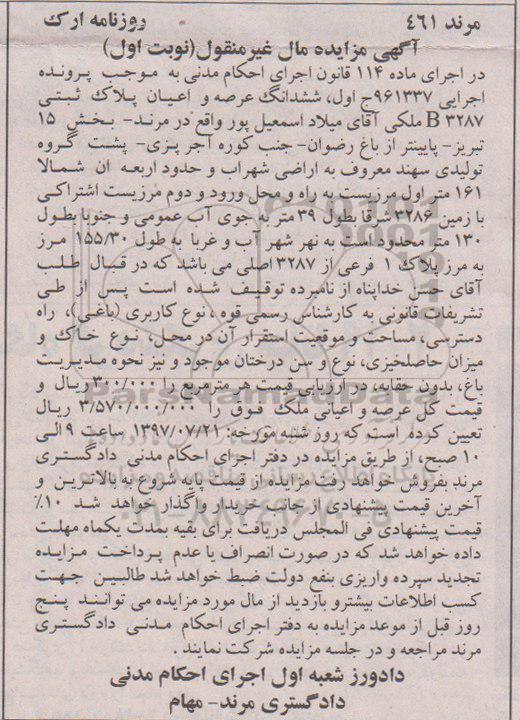 مرند ٤٦١ روزنامه ارک
آگهی مزایده مال غیرمنقول(نوبت اول)
در اجرای ماده ۱۱۴ قانون اجرای احکام مدنی به موجب پرونده
اجرایی ۹۶۱۳۳۷ج اول، ششدانگ عرصه و اعیان پلاک ثبتی
B ۳۲۸۷ ملکی آقای میلاد اسمعیل پور واقع در مرند- بخش ۱۵
تبریز- پایینتر از باغ رضوان- جنب کوره آجر پزی- پشت گروه
تولیدی سهند معروف به اراضی شهراب و حدود اربعه ان شمالا
۱۶۱ متر اول مرزیست به راه و محل ورود و دوم مرزیست اشتراکی
با زمین ۳۲۸۶ شرقا بطول ۳۹ متر به جوی آب عمومی و جنوبا بطول
۱۳۰ متر محدود است به نهر شهر آب و غربا به طول ۱۵۵/۳۰ مرز
به مرز پلاک ۱ فرعی از ۳۲۸۷ اصلی می باشد که در قبال طلب
آقای حسن خداپناه از نامبرده توقیف شده است پس از طی
تشریفات قانونی به کارشناس رسمی قوه ، نوع کاربری (باغی)، راه
دسترسی، مساحت و موقعیت استقرار آن در محل، نوع خاک و
میزان حاصلخیزی، نوع و سن درختان موجود و نیز نحوه مدیریت
باغ، بدون حقابه، در ارزیابی قیمت هر مترمربع را ۳۰۰/۰۰۰ ریال و
قیمت کل عرصه و اعیانی ملک فوق را ۳/۵۷۰/۰۰۰/۰۰۰ ریال
تعیین کرده است که روز شنبه مورخه: ۱۳۹۷/۰۷/۲۱ ساعت ۹ الی
۱۰ صبح، از طریق مزایده در دفتر اجرای احکام مدنی دادگستری
مرند بفروش خواهد رفت مزایده از قیمت پایه شروع به بالاترین و
آخرین قیمت پیشنهادی از جانب خریدار واگذار خواهد شد ۱۰٪
قیمت پیشنهادی فی المجلس دریافت برای بقیه بمدت یکماه مهلت
داده خواهد شد که در صورت انصراف یا عدم پرداخت مزایده
تجدید سپرده واریزی بنفع دولت ضبط خواهد شد طالبین جهت
کسب اطلاعات بیشترو بازدید از مال مورد مزایده می توانند پنج
روز قبل از موعد مزایده به دفتر اجرای احکام مدنی دادگستری
مرند مراجعه و در جلسه مزایده شرکت نمایند .
دادورز شعبه اول اجرای احکام مدنی
دادگستری مرند- مهام
ParsNamadData